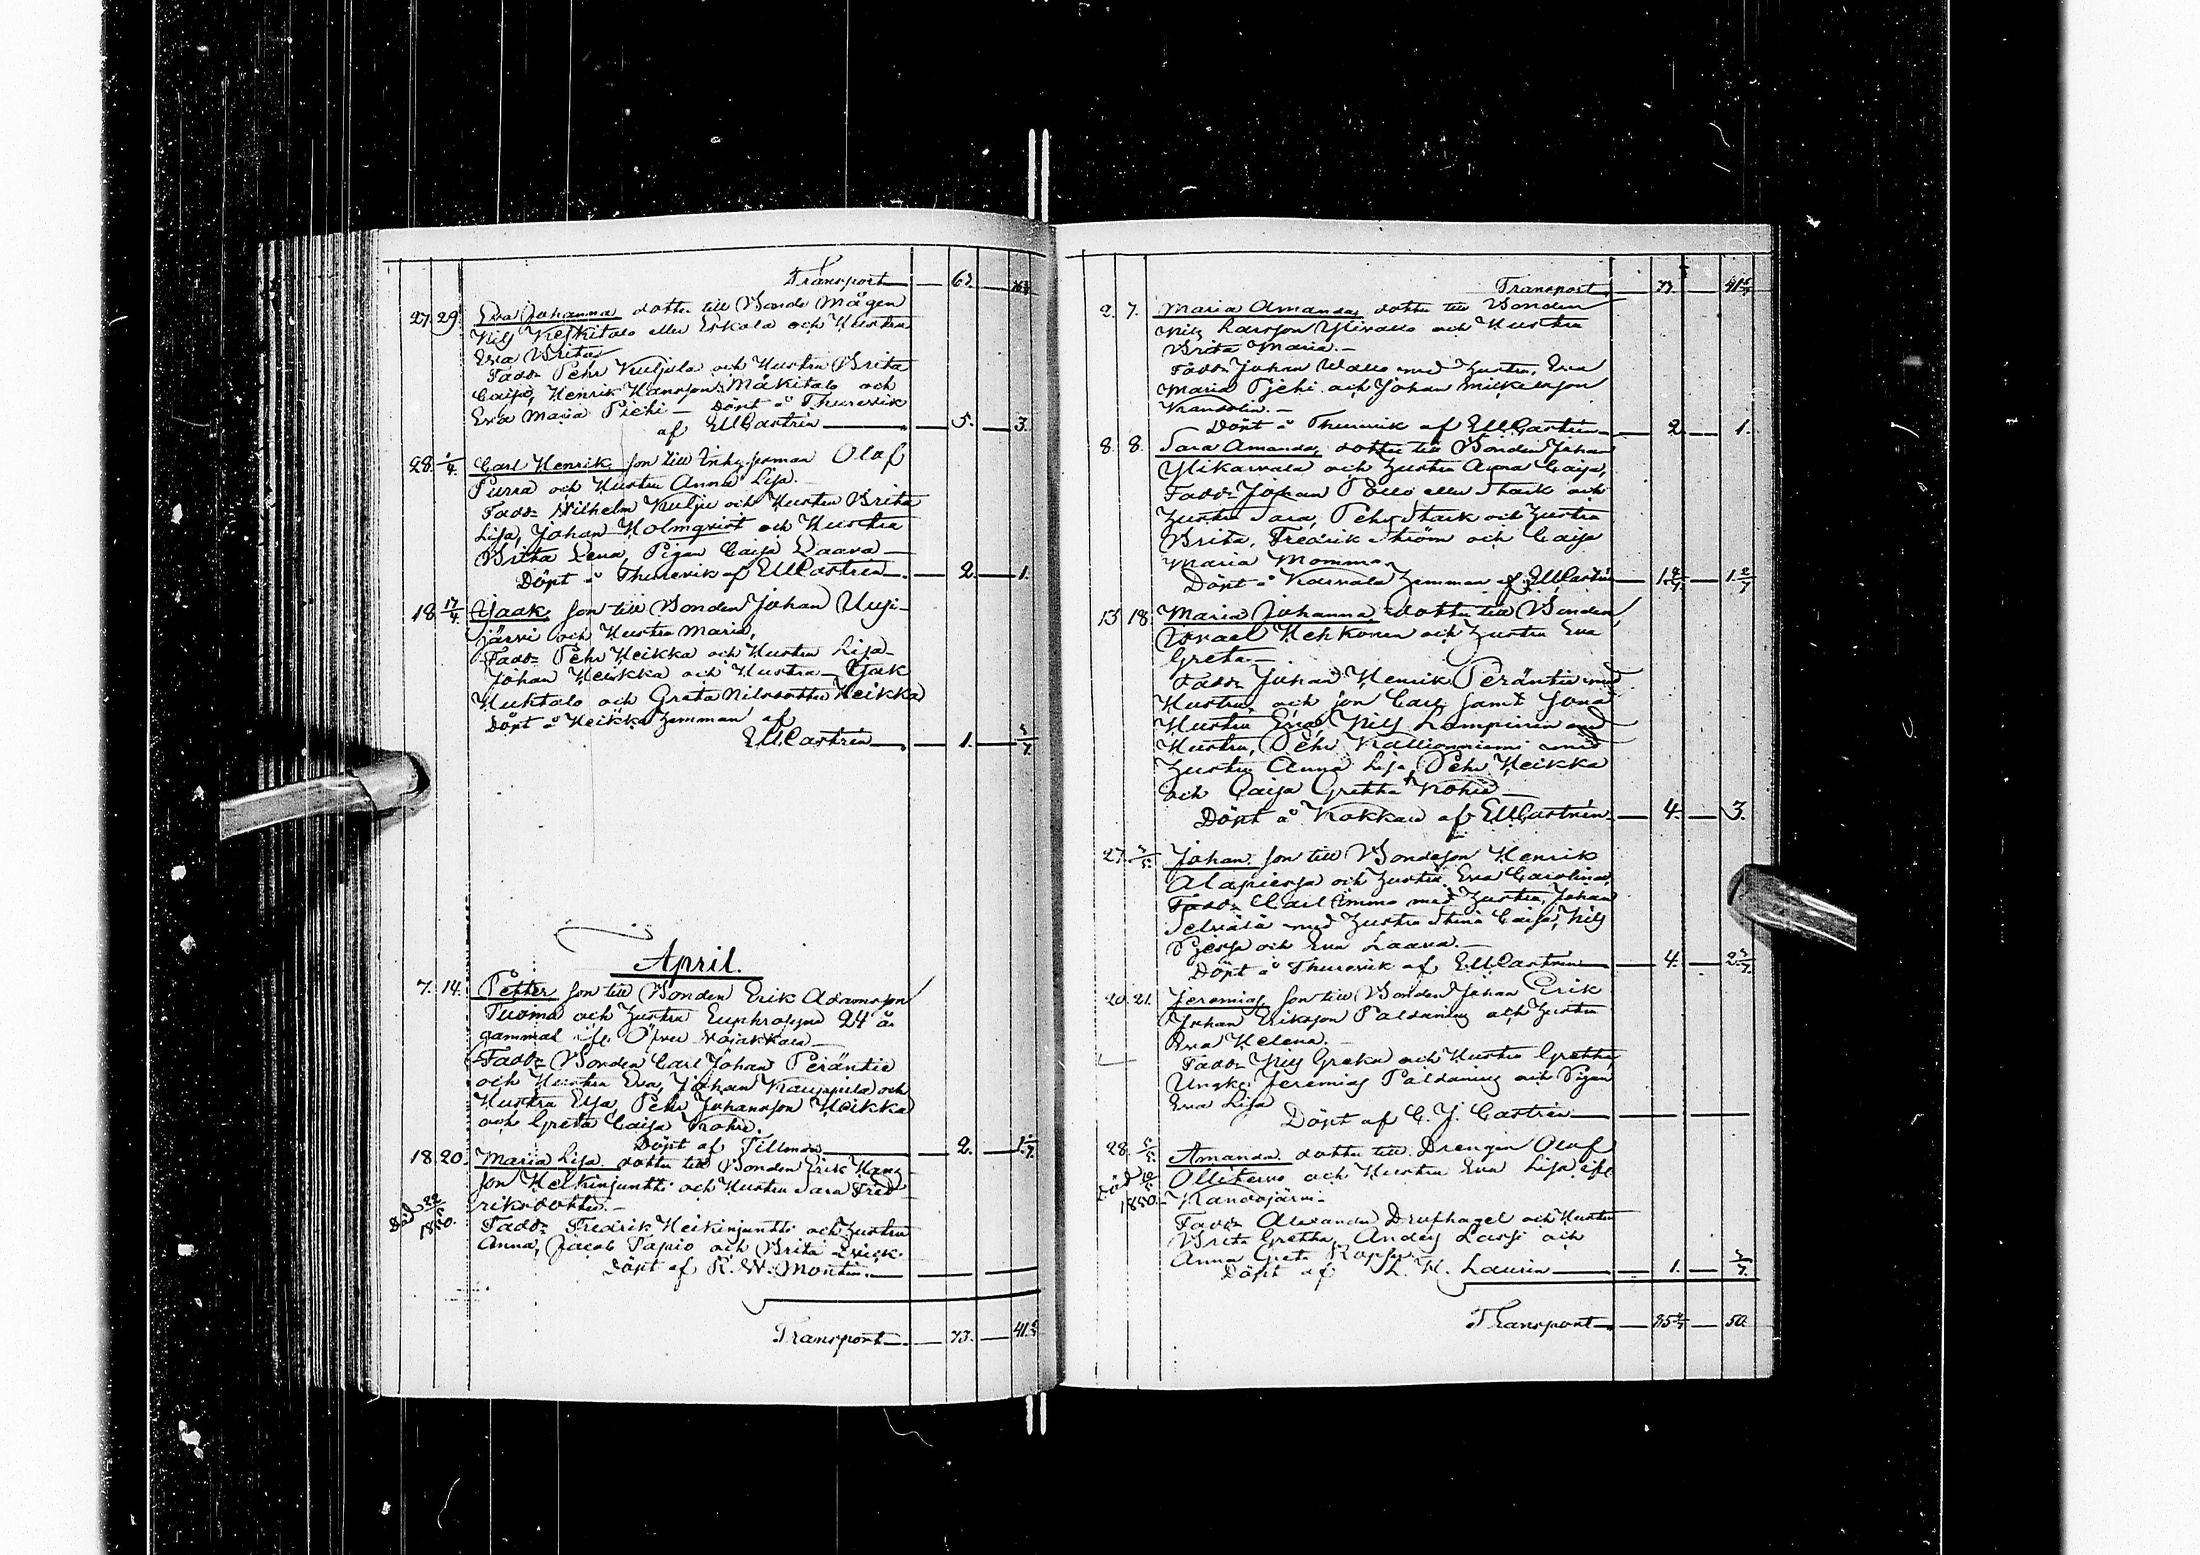 Transport 67.
27. 29. Eva Johanna dotter till Bonde Mågen
Nils Keskitalo eller Erkola och Hustru
Eva Brita
Fadd: Pehr Kuljula och Hustru Brita
Caisa, Henrik Hansson Mäkitalo och
Eva Maria Piehi — Döpt å Thurevik
af EMCastrén 5. 3.
28. 1/4. Carl Henrik son till Inhysesman Olof
Purra och Hustru Anna Lisa.
Fadd: Wilhelm Kulju och Hustru Brita
Lisa, Johan Holmqvist och Hustru
Britta Lena, Pigan Caisa Laava —
Döpt å Thurevik af EMCastrén 2. 1.
18. 17/4. Isaak, son till Bonden Johan Uusi-
järvi och Hustru Maria,
Fadd: Pehr Heikka och Hustru Lisa
Johan Heikka och Hustru — Isak
Huhtalo och Greta Nilsdotter Heikka
Döpt å Heikka hemman af
EMCastrén 1. 5/7
April.
7. 14. Petter son till Bonden Erik Adamsson
Tuoma och Hustru Euphrosyne 24 år
gammal ifr. Öfver Vojakkala
Fadd: Bonden Carl Johan Peräntie
och Hustru Eva, Johan Kauppila och
Hustru Elsa, Pehr Johansson Heikka
och Greta Caisa Kohu.
Döpt af Tillonda 2.
18. 20. Maria Lisa dotter till Bonden Erik Hans-
son Heikinjuntti och Hustru Sara Fred-
riksdotter. —
Död 22/5 1850.
Fadd: Fredrik Heikinjuntti och Hustru
Anna, Jacob Tapio och Brita
Döpt af K. W. Montin.
Transport 73. 41.
Transport 73. 41
2. 7. Maria Amanda, dotter till Bonden
Nils Larsson Ylivallo och Hustru
Brita Maria. —
Fadd: Johan Wallo med Hustru, Eva
Maria Pjehi och Johan Mickelsson
Kandelin. —
Döpt å Thurevik af EMCastrén 2. 1.
8. 8. Sara Amanda, dotter till Bonden Johan
Ylikarvala och Hustru Anna Caisa,
Fadd: Johan Pollo eller Stark och
Hustru Sara, Pehr Stark och Hustru
Brita, Fredrik Ström och Caisa
Maria Momma
Döpt å Karvala hemman af EMCastrén
13. 18. Maria Johanna dotter till Bonden
Israel Hehkonen och Hustru Eva
Greta —
Fadd: Johan Henrik Peräntie med
Hustru och son Carl samt Jona
Hustru Eva, Nils Lampinen med
Hustru, Pehr Kallionniemi med
Hustru Anna Lisa, Pehr Heikka
och Caisa Gretha Kohu —
Döpt å Kokkau af EMCastrén 4. 3.
27. Johan, son till Bondeson Henrik
Alapiesa och Hustru Eva Carolina,
Fadd: Carl Ömmo med Hustru, Johan
Selvälä med Hustru Stina Caisa, Nils
Pjesa och Eva Laava. —
Döpt å Thurevik af EMCastrén 4.
20. 21. Jeremias, son till Bonden Johan Erik
Johan Eriksson Paldanius och Hustru
Eva Helena. —
Fadd: Nils Greku och Hustru Gretha,
Ungk. Jeremias Paldanius och Pigan
Eva Lisa
Döpt af C. J. Castrén
28. 5/5. Amanda dotter till Drengen Olof
Ollikerno och Hustru Eva Lisa ifr.
Död 1850. Kandojärvi —
Fadd: Alexander Drufhagel och Hustru
Brita Gretha, Anders Lassi och
Anna Greta
Döpt af L. H. Laurin 1. 5/7.
Transport 50.